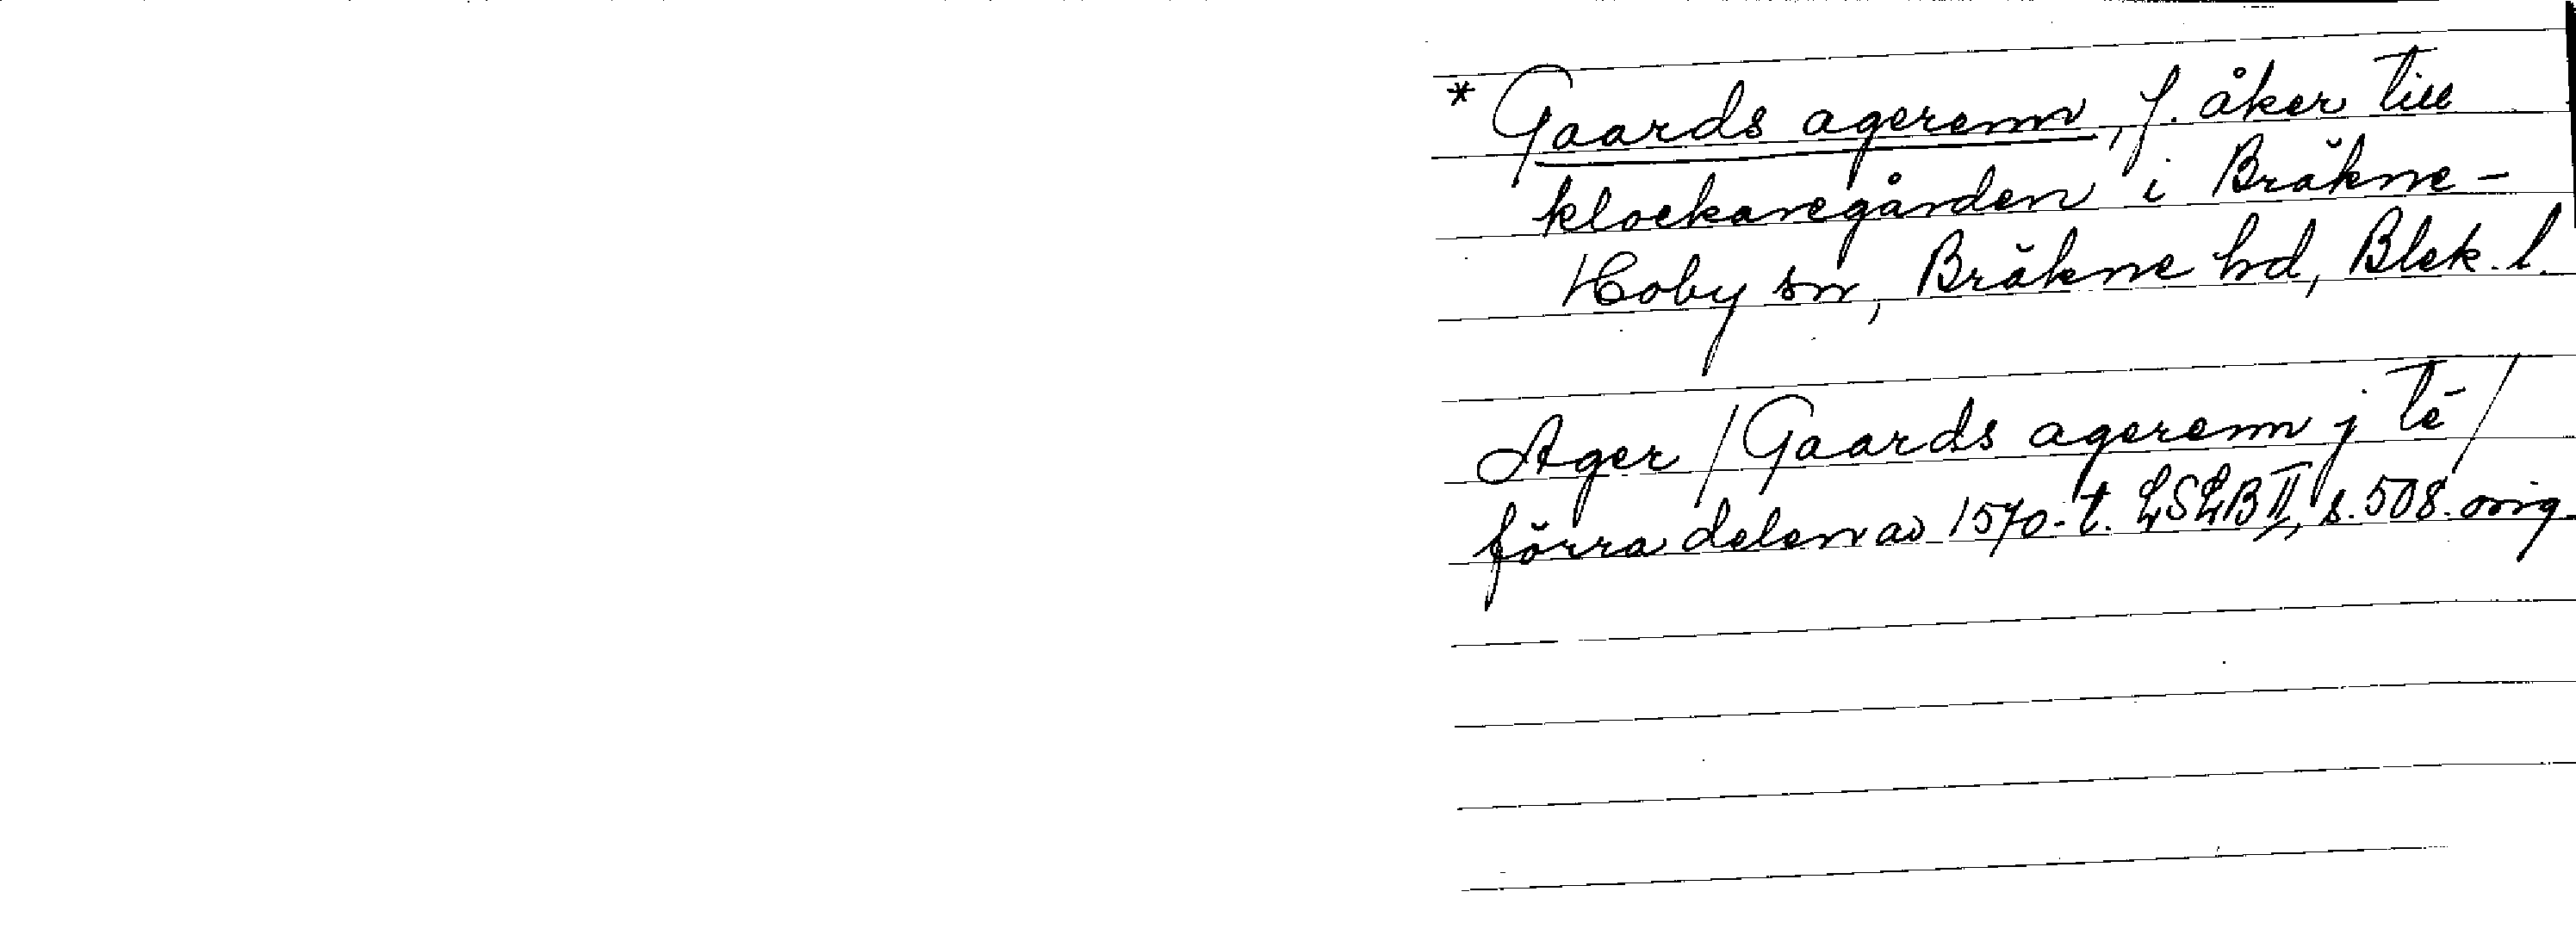 * Gaards agerenn, f. åker till
klockaregården i Bräkne-
Hoby sn, Bräkne hd, Blek. l.
Ager / Gaards agerenn j té /
förra delen av 1570-t. LSLB II, s. 508. orig